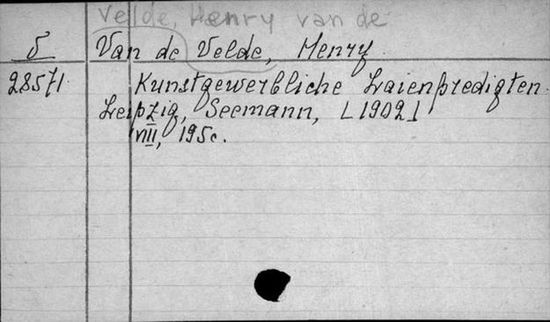 Velde, Henry van de
V Van de Velde, Henry.
28571 Kunstgewerbliche Laienpredigten.
Leipzig, Seemann, [1902]
VIII, 195c.